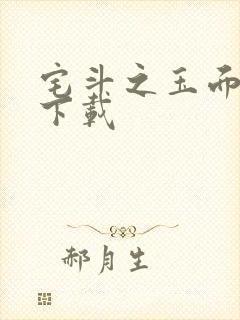 宅斗之玉而
下载
郝月生